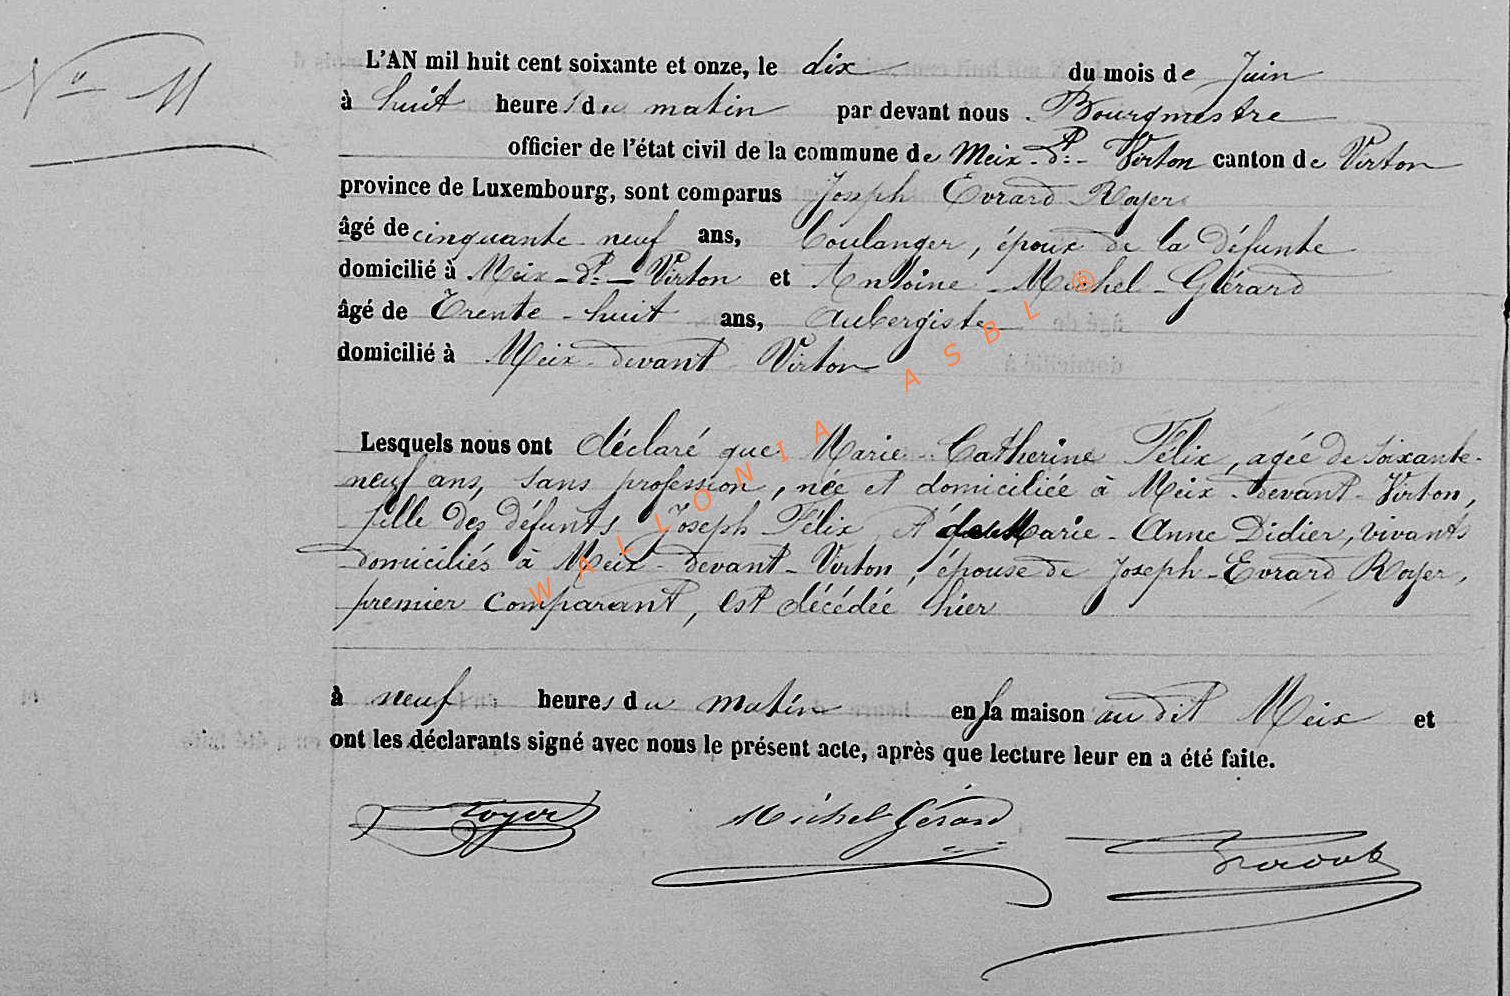 Nº 11
L'AN mil huit cent soixante et onze, le dix du mois de Juin
à huit heures du matin par devant nous Bourgmestre
officier de l'état civil de la commune de Meix-dt-Virton canton de Virton
province de Luxembourg, sont comparus Joseph Evrard Royer
âgé de cinquante neuf ans, boulanger, époux de la défunte
domicilié à Meix-dt-Virton et Antoine-Michel-Gérard
âgé de Trente-huit ans, Aubergiste
domicilié à Meix-devant-Virton
Lesquels nous ont déclaré que Marie-Catherine Félix, agée de soixante-
neuf ans, sans profession, née et domiciliée à Meix-devant-Virton,
fille des défunts Joseph Félix et de Marie-Anne Didier, vivants
domiciliés à Meix-devant-Virton, épouse de Joseph-Evrard Royer,
premier comparant, est décédée hier
à neuf heures du matin en sa maison au dit Meix et
ont les déclarants signé avec nous le présent acte, après que lecture leur en a été faite.
Royer Michel Gérard
WALLONIA ASBL ®